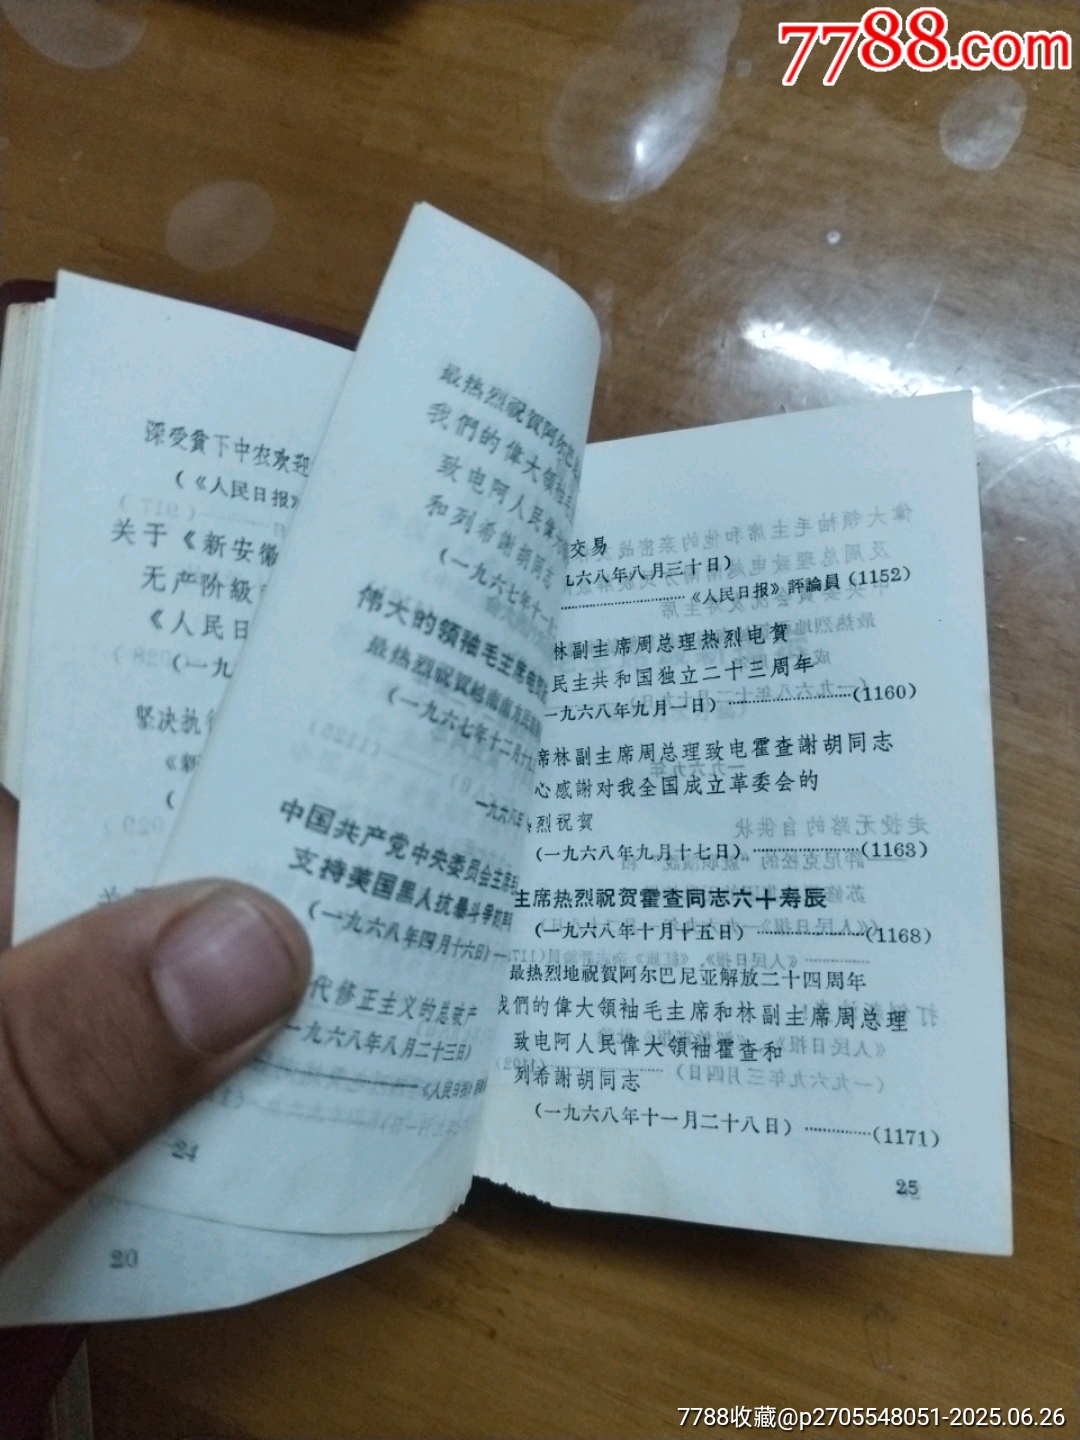 7788.com
深受貧下中农欢迎
(《人民日报》
关于《新安徽
无产阶級
《人民日
(一九
坚决执行
20
最热烈祝賀阿尔巴
我們的偉大領袖毛
致电阿人民偉大
和列希謝胡同志
(一九六七年十一
伟大的领袖毛主席电贺
最热烈祝賀越南南方民
(一九六七年十二月十
一九六八年
中国共产党中央委员会主席毛
支持美国黑人抗暴斗争的声
(一九六八年四月十六日)
代修正主义的总破产
一九六八年八月二十三日)
《人民日报》
24
交易
九六八年八月三十日)
《人民日报》評論員(1152)
林副主席周总理热烈电賀
民主共和国独立二十三周年
一九六八年九月一日)…………(1160)
席林副主席周总理致电霍查謝胡同志
心感謝对我全国成立革委会的
烈祝賀
(一九六八年九月十七日)…………(1163)
主席热烈祝贺霍查同志六十寿辰
(一九六八年十月十五日)…………(1168)
最热烈地祝賀阿尔巴尼亚解放二十四周年
我們的偉大領袖毛主席和林副主席周总理
致电阿人民偉大領袖霍查和
列希謝胡同志
(一九六八年十一月二十八日)…………(1171)
25
7788收藏@p2705548051-2025.06.26